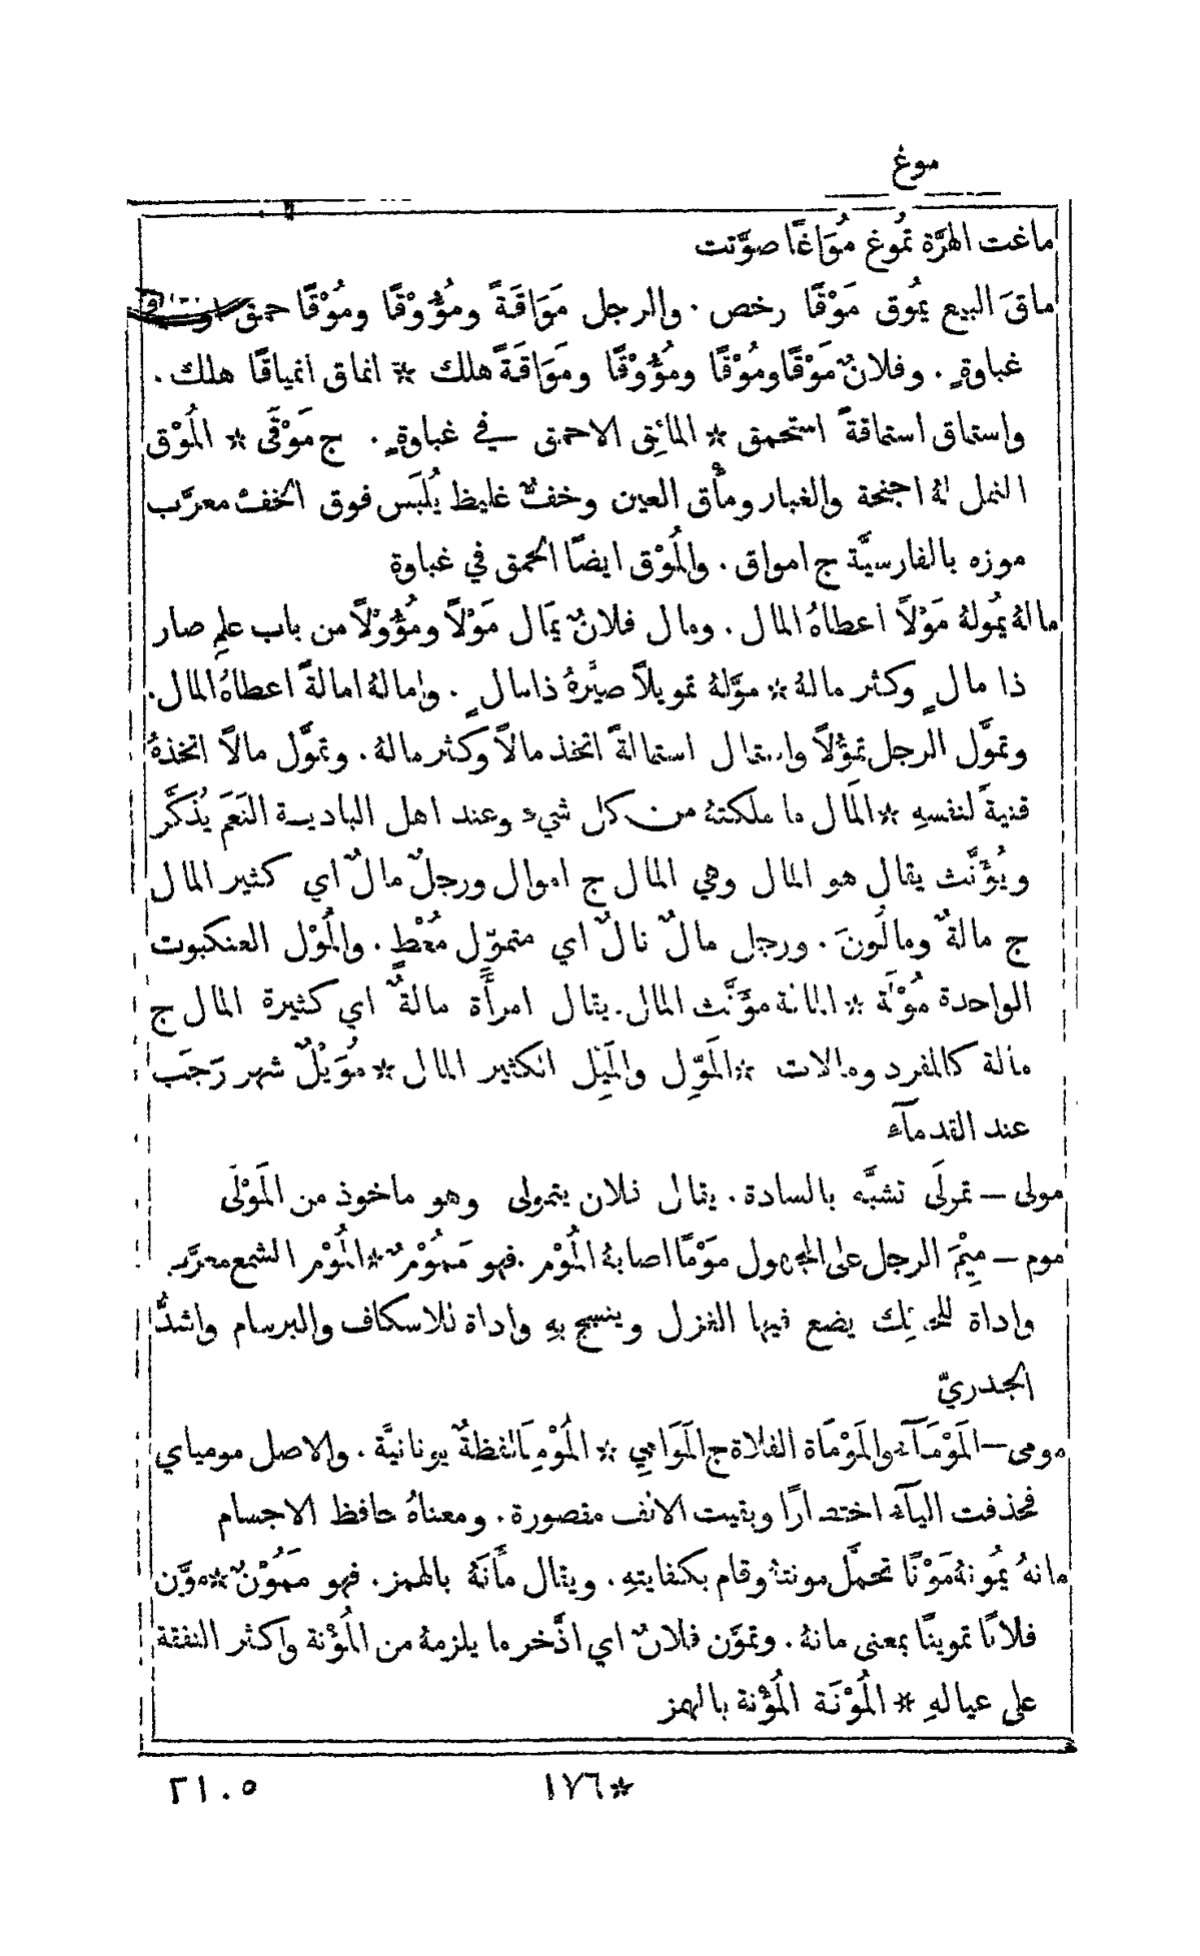 موغ
ماغت الهرَّة تمُوغ مُوَاغًا صوَّتت
ماقَ البيع يمُوق مَوْقًا رخص ۰ والرجل مَوَاقَةً ومُؤُوْقًا ومُوْقًا حمق
غباوةٍ ۰ وفلانٌ مَوْقًا ومُوْقًا ومُؤُوْقًا ومَوَاقَةً هلك * انماق انمياقًا هلك ۰
واستماق استماقةً استحمق * المائِق الاحمق في غباوةٍ ۰ ج مَوْقَى * المُوْق
النمل لهُ اجنحة والغبار ومأْق العين وخفٌّ غليظ يُلبَس فوق الخفّ معرَّب
موزه بالفارسيَّة ج امواق ۰ والمُوْق ايضًا الحمق في غباوة
مالهُ يمُولهُ مَوْلاً اعطاهُ المال ۰ ومال فلانٌ يمَال مَوْلاً ومُؤُوْلاً من باب علِم صار
ذا مالٍ وكثر مالهُ * موَّلهُ تمويلاً صيَّرهُ ذا مالٍ ۰ وامالهُ امالةً اعطاهُ المال ۰
وتموَّل الرجل تموُّلاً واستمال استمالةً اتخذ مالاً وكثر مالهُ ۰ وتموَّل مالاً اتخذهُ
قنيةً لنفسهِ * المَال ما ملكتهُ من كل شيءٍ وعند اهل البادية النَعَم يُذكَّر
ويُؤَنَّث يقال هو المال وهي المال ج اموال ورجلٌ مالٌ اي كثير المال
ج مالةٌ ومالُونَ ۰ ورجل مالٌ نالٌ اي متموِّل مُعْطٍ ۰ والمُوْل العنكبوت
الواحدة مُوْلَة * المالة مؤَنَّث المال ۰ يقال امرأَة مالةٌ اي كثيرة المال ج
مالة كالمفرد ومالات * المَوِّل والمَيِّل الكثير المال * مُوَيْلٌ شهر رَجَب
عند القدمآء
مولى — تمولَى تشبَّه بالسادة ۰ يقال فلان يتمولى وهو ماخوذ من المَوْلَى
موم — مِيْمَ الرجل على المجهول مَوْمًا اصابهُ المُوْم ۰ فهو مَمُوْمٌ * المُوْم الشمع معرَّب
واداة للحائِك يضع فيها الغزل وينسج بهِ واداة للاسكاف والبرسام واشدُّ
الجدريّ
مومى — المَوْمَآء والمَوْمَاة الفلاة ج المَوَامِي * المُوْمِيَا لفظةٌ يونانيَّة ۰ والاصل مومياي
فحذفت اليآء اختصارًا وبقيت الالف مقصورة ۰ ومعناهُ حافظ الاجسام
مانهُ يمُونهُ مَوْنًا تحمَّل مونتهُ وقام بكفايتهِ ۰ ويقال مأَنَهُ بالهمز ۰ فهو مَمُوْنٌ * موَّن
فلانًا تموينًا بمعنى مانهُ ۰ وتموَّن فلانٌ اي ادَّخر ما يلزمهُ من المُؤْنة واكثر النفقة
على عيالهِ * المُوْنَة المُؤْنة بالهمز
٢١٠٥ *١٧٦